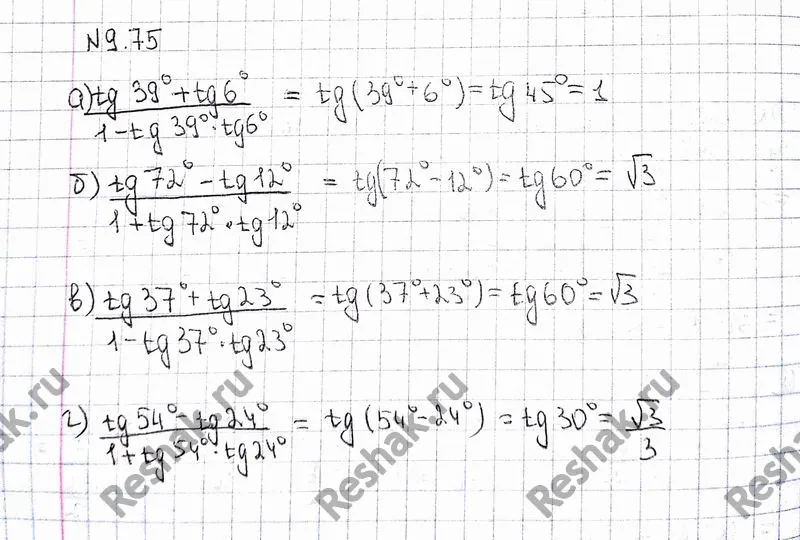 №9.75
а) tg 39° + tg 6° / 1 - tg 39° · tg 6° = tg (39° + 6°) = tg 45° = 1
б) tg 72° - tg 12° / 1 + tg 72° · tg 12° = tg (72° - 12°) = tg 60° = √3
в) tg 37° + tg 23° / 1 - tg 37° · tg 23° = tg (37° + 23°) = tg 60° = √3
г) tg 54° - tg 24° / 1 + tg 54° · tg 24° = tg (54° - 24°) = tg 30° = √3 / 3
Reshak.ru
Reshak.ru
Reshak.ru
Reshak.ru
Reshak.ru